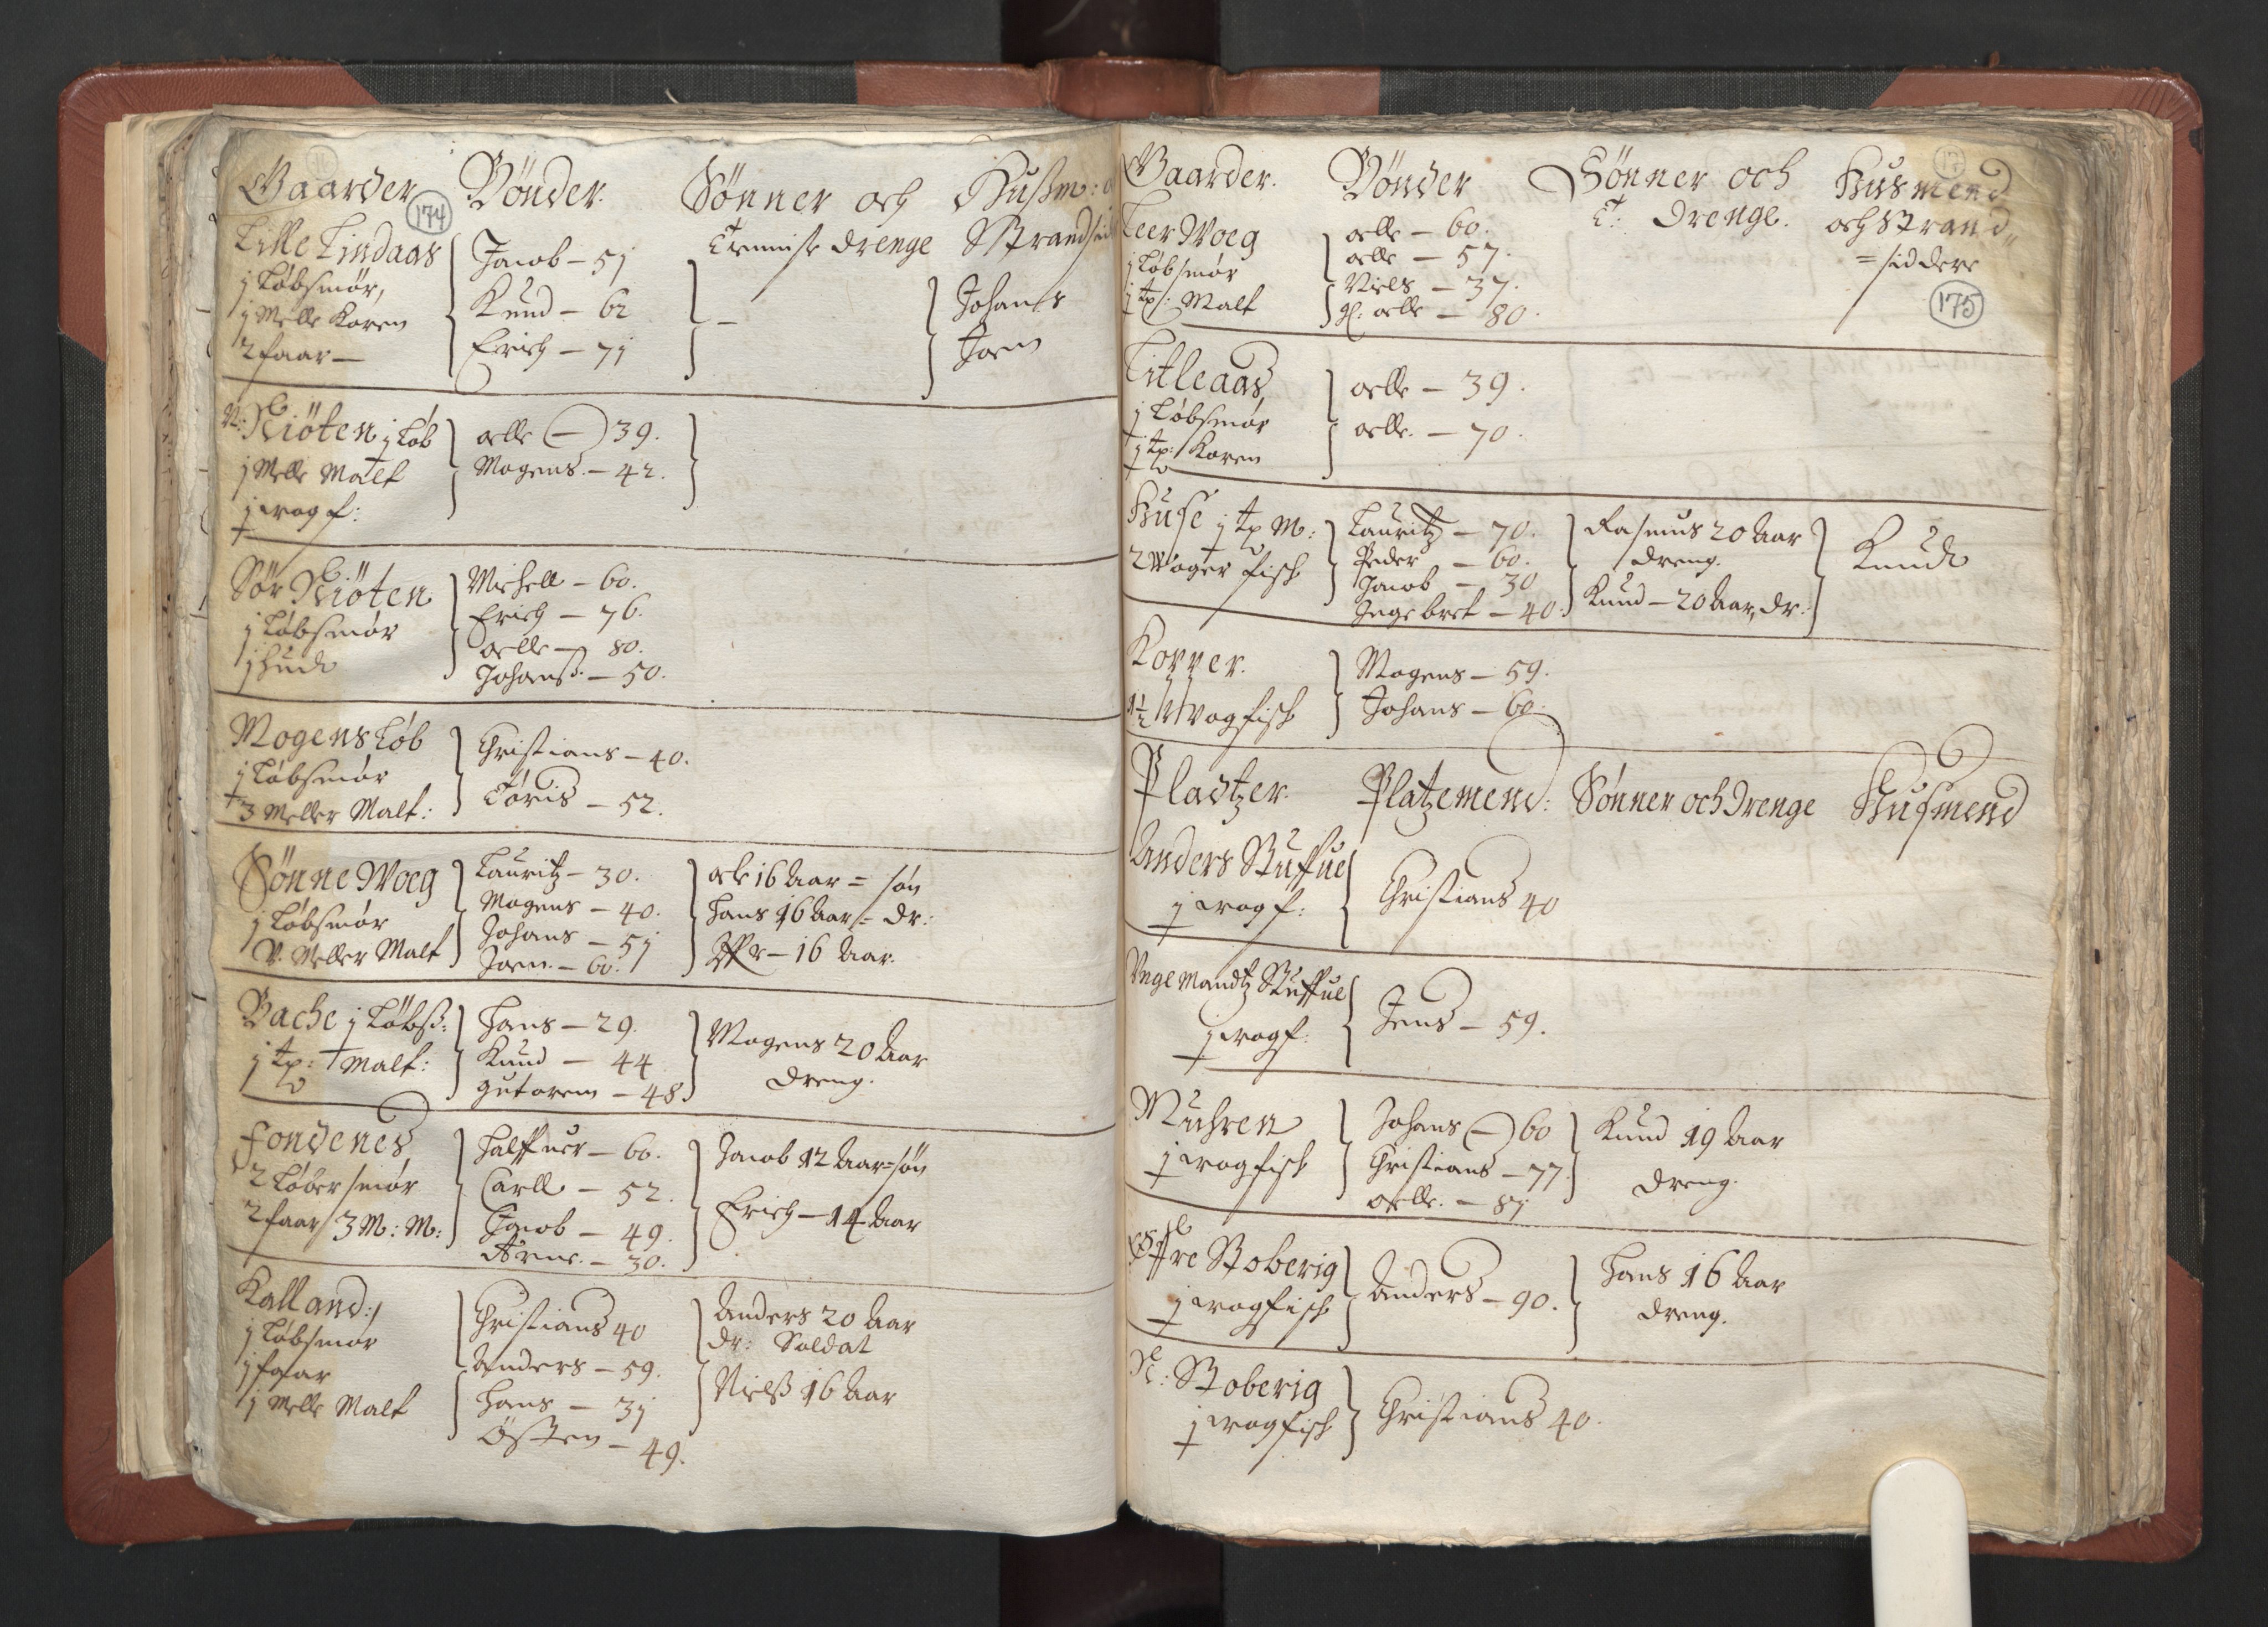 Gaarder Bønder. Sønner och Hußm:
174
Tienniste drenge Strandsid
Lille Lindaas
j Løbsmør,
j Melle Koren
2 faar —
Jacob — 5j
Knud — 62
Erich — 7j
—
Johans
Joen
N: Kiöten j Løb
j Melle Malt
j wog f:
oelle — 39.
Mogens. — 42.
Sør Kiöten
j Løbsmør
j Hude
Michell — 60.
Erich — 76.
oelle — 80.
Johanß. — 50.
Mogensløb
j Løbsmør
3 Meller Malt:
Christians — 40.
Tøris — 52.
Sønne Woeg
j Løbsmør
V. Meller Malt
Lauritz — 30.
Mogens — 40.
Johans — 5j
Joen. — 60.
oele 16 Aar = søn
Hans 16 Aar = dr:
— 16 Aar.
Bache j Løbß:
j tp: Malt:
Hans — 29.
Knud — 44
Gutorem — 48
Mogens 20 Aar
dreng.
Fondenes
2 Løber smør
2 faar 3 M: M:
Halffuer — 60.
Carll — 52.
Jacob — 49.
Arne. — 30.
Jacob 12 Aar = søn
Erich — 14 Aar
Kalland:
j Løbsmør
j faar
j Melle Malt
Christians 40
Anders — 59.
Hans — 3j
Östen — 49.
Anders 20 Aar
dr: Soldat
Nielß 16 Aar
Gaarder. Bønder Sønner och Husmend
T: Drenge. och Strand„
= siddere
175
Leer Woeg
j Løbsmør
j tp: Malt
oelle — 60.
oelle — 57.
Niels — 37.
gl: oelle — 80.
Litleaas
j Løbsmør
j tp: Koren
oelle — 39.
oelle. — 70.
Huse j tp M:
2 Woger fisch
Lauritz — 70.
Peder — 60.
Jacob — 30
Ingebret — 40.
Rasmus 20 Aar
dreng.
Knud — 20 Aar, dr:
Knud
Kopper.
1½ Wog fisch
Mogens — 59.
Johans — 60.
Pladtzer. Platzemend: Sønner och Drenge Husmend
Anders Skuffue
j wog f:
Christians 40
Unge Mandtz Skuffue
j wog f:
Jens — 59.
Muhren
j wog fisch
Johans — 60
Christians — 77
oelle. — 8j
Knud 19 Aar
dreng.
Øffre Stoberig
j wog fisch
Anders — 90.
Hans 16 Aar
dreng.
N: Stoberig
j wog fisch
Christians 40.